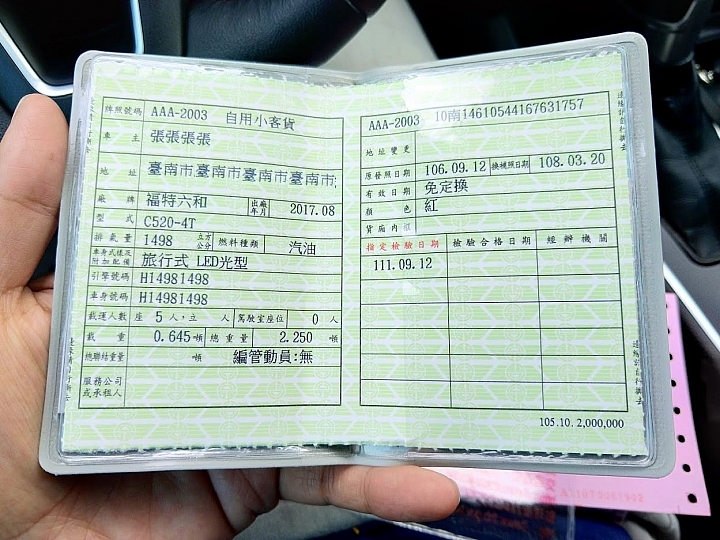 牌照號碼 AAA-2003 自用小客貨
車主 張張張張
地址 臺南市臺南市臺南市臺南市
廠牌 福特六和 出廠年月 2017.08
型式 C520-4T
排氣量 1498 立方公分 燃料種類 汽油
車身式樣及附加配備 旅行式 LED光型
引擎號碼 H14981498
車身號碼 H14981498
載運人數 座 5 人,立 人 駕駛室座位 0 人
載重 0.645 噸 總重量 2.250 噸
總聯結重量 噸 編管動員:無
服務公司或承租人
AAA-2003 10南14610544167631757
地址變更
原發照日期 106.09.12 換補照日期 108.03.20
有效日期 免定換
顏色 紅
貨施內框
指定檢驗日期 檢驗合格日期 經辦機關
111.09.12
105.10. 2,000,000